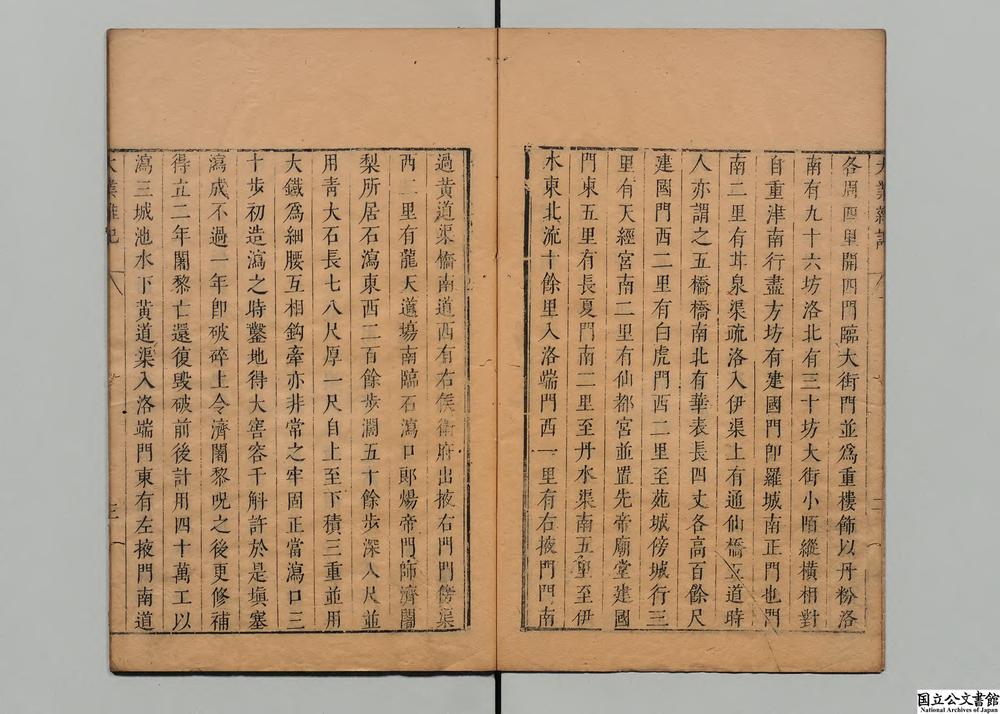 大業雜記
二
各周四里開四門臨大街門並爲重樓飾以丹粉洛
南有九十六坊洛北有三十坊大街小陌縱橫相對
自重津南行盡方坊有建國門卽羅城南正門也門
南二里有甘泉渠疏洛入伊渠上有通仙橋五道時
人亦謂之五橋橋南北有華表長四丈各高百餘尺
建國門西二里有白虎門西二里至苑城傍城行三
里有天經宮南二里有仙都宮並置先帝廟堂建國
門東五里有長夏門南二里至丹水渠南五里至伊
水東北流十餘里入洛端門西一里有右掖門門南
過黃道渠橋南道西有右侯衛府出掖右門門傍渠
西二里有龍天道場南臨石瀉口郎煬帝門師濟闍
梨所居石瀉東西二百餘步濶五十餘步深八尺並
用青大石長七八尺厚一尺自上至下積三重並用
大鐵爲細腰互相鈎牽亦非常之牢固正當瀉口三
十步初造瀉之時鑿地得大窖容千斛許於是塡塞
瀉成不過一年卽破碎上令濟闍黎呪之後更修補
得立二年闍黎亡還復毀破前後計用四十萬工以
瀉三城池水下黃道渠入洛端門東有左掖門南道
大業雜記
三
国立公文書館
National Archives of Japan